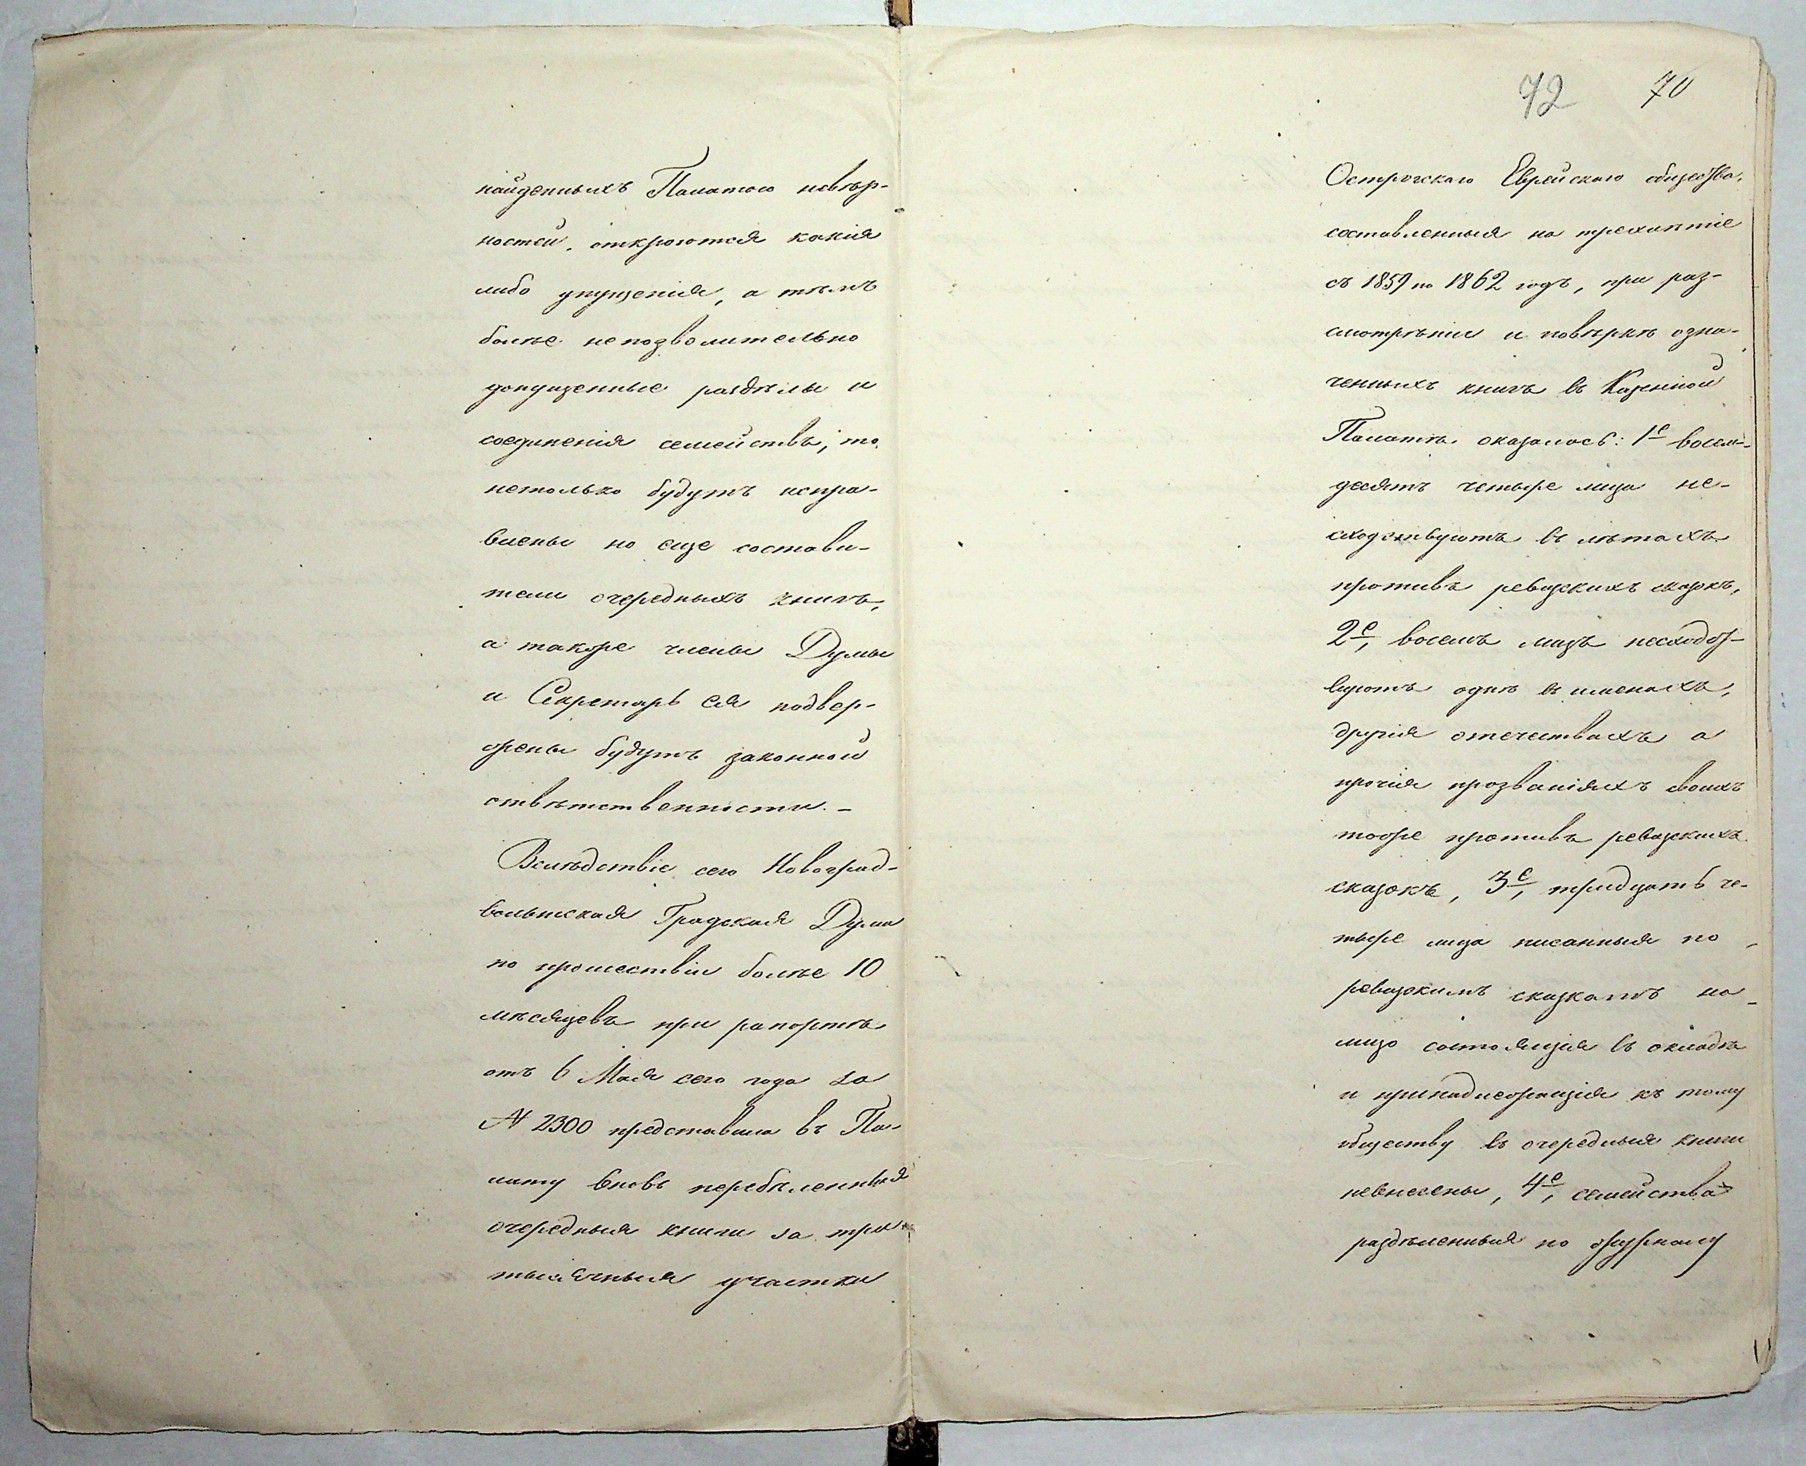 найденныхъ Палатою невѣр-
ностей, откроются какія
либо упущенія, а тѣмъ
болѣе непозволительно
допущенные раздѣлы и
соединенія семействъ, то
нетолько будутъ испра-
влены но еще состави-
тели очередныхъ книгъ,
а также члены Думы
и Секретарь ея подвер-
жены будутъ законной
отвѣтственности. –
Вслѣдствіе сего Новоград-
волынская Градская Дума
по прошествіи болѣе 10
мѣсяцевъ при рапортѣ
отъ 6 Мая сего года за
№ 2300 представила въ Па-
лату вновь перебѣленныя
очередныя книги за три
тысячныя участки
72 70
Острожскаго Еврейскаго общества,
составленныя на трехлѣтіе
съ 1859 по 1862 годъ, при раз-
смотрѣніи и повѣркѣ озна-
ченныхъ книгъ въ Казенной
Палатѣ оказалось: 1е восем-
десятъ четыре лица не-
сходствуютъ въ лѣтахъ
противъ ревизскихъ сказокъ,
2е, восемь лицъ несходст-
вуютъ одни въ именахъ,
другія отечествахъ а
прочія прозваніяхъ своихъ
тоже противъ ревизскихъ
сказокъ, 3е, тридцать че-
тыре лица писанныя по
ревизскимъ сказкамъ на-
лицо состоящія въ окладѣ
и принадлежащія къ тому
обществу въ очередныя книги
невнесены, 4е, семейства
раздѣленныя по